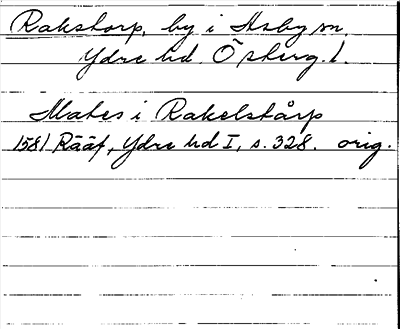 Rakstorp, by i Asby sn.
Ydre hd. Östherg. l.
Mates i Rakelstårp
1581 Rääf, Ydre hd I, s. 328. orig.